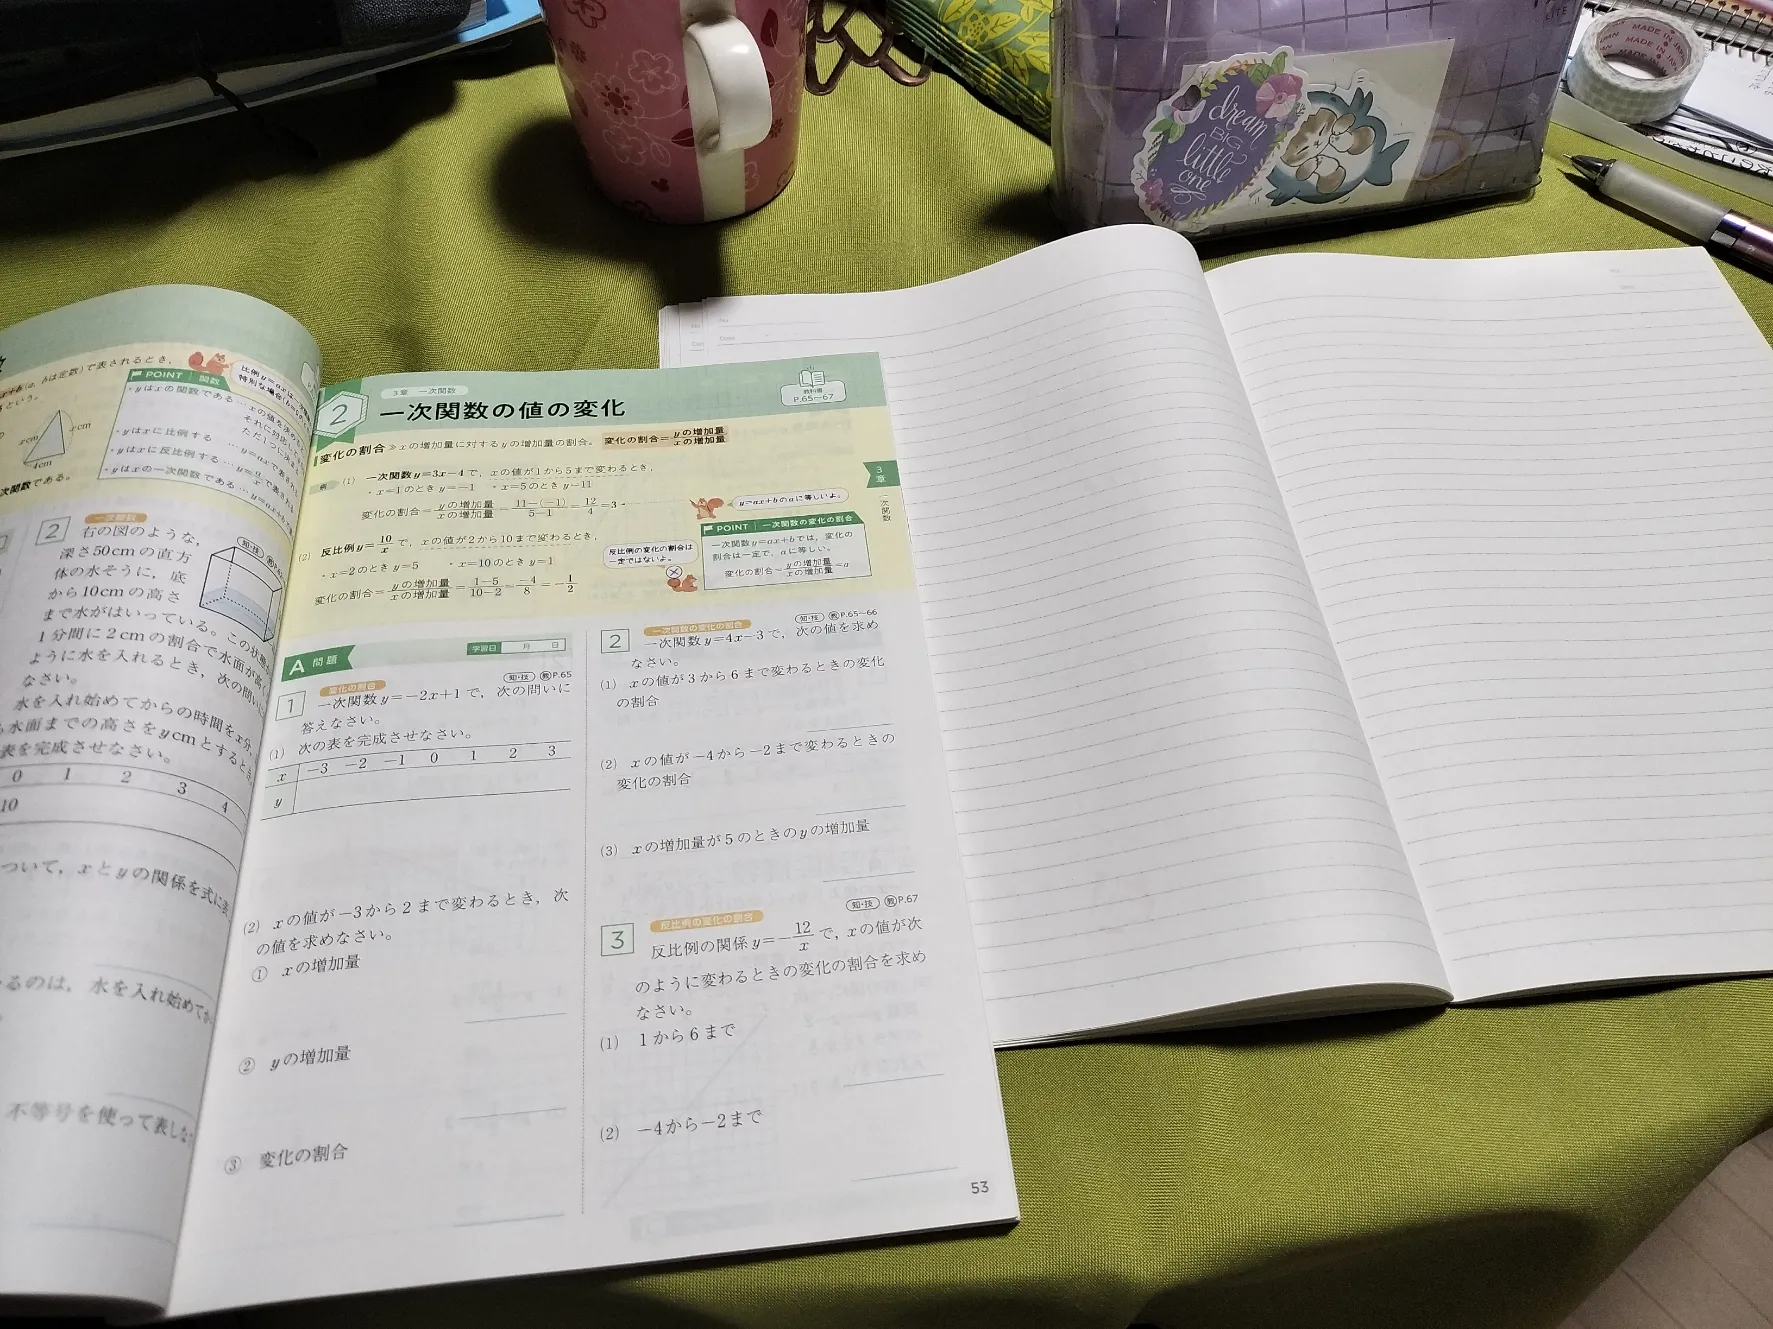 (a, bは定数)で表されるとき,
という。
POINT 関数
・yはxの関数である…
・yはxに比例する …y=ax
・yはxに反比例する…
・yはxの一次関数である…
xcm
xcm
4cm
次関数である。
2
右の図のような,
深さ50cmの直方
体の水そうに, 底
から10cmの高さ
まで水がはいっている。この状態
1分間に2cmの割合で水面が高く
ように水を入れるとき, 次の問いに
なさい。
水を入れ始めてからの時間をx分,
水面までの高さをycmとするとき
表を完成させなさい。
0 1 2 3 4
10
ついて, xとyの関係を式に表
るのは, 水を入れ始めてか
不等号を使って表しな
3章 一次関数
2 一次関数の値の変化
教科書
P.65~67
変化の割合 ≫ xの増加量に対するyの増加量の割合。 変化の割合=yの増加量/xの増加量
例 (1) 一次関数y=3x-4で, xの値が1から5まで変わるとき,
・x=1のとき y=-1 ・x=5のとき y=11
変化の割合=yの増加量/xの増加量=11-(-1)/5-1=12/4=3
y=ax+bのaに等しいよ。
(2) 反比例y=10/xで, xの値が2から10まで変わるとき,
・x=2のとき y=5 ・x=10のとき y=1
変化の割合=yの増加量/xの増加量=1-5/10-2=-4/8=-1/2
反比例の変化の割合は
一定ではないよ。
POINT 一次関数の変化の割合
一次関数y=ax+bでは, 変化の
割合は一定で, aに等しい。
変化の割合=yの増加量/xの増加量=a
3章
一次関数
A 問題
学習日 月 日
変化の割合
知・技 教P.65
1 一次関数y=-2x+1で, 次の問いに
答えなさい。
(1) 次の表を完成させなさい。
x -3 -2 -1 0 1 2 3
y
(2) xの値が-3から2まで変わるとき, 次
の値を求めなさい。
① xの増加量
② yの増加量
③ 変化の割合
一次関数の変化の割合
知・技 教P.65~66
2 一次関数y=4x-3で, 次の値を求め
なさい。
(1) xの値が3から6まで変わるときの変化
の割合
(2) xの値が-4から-2まで変わるときの
変化の割合
(3) xの増加量が5のときのyの増加量
反比例の変化の割合
知・技 教P.67
3 反比例の関係y=-12/xで, xの値が次
のように変わるときの変化の割合を求め
なさい。
(1) 1から6まで
(2) -4から-2まで
53
dream
BIG
little
one
MADE IN JAPAN